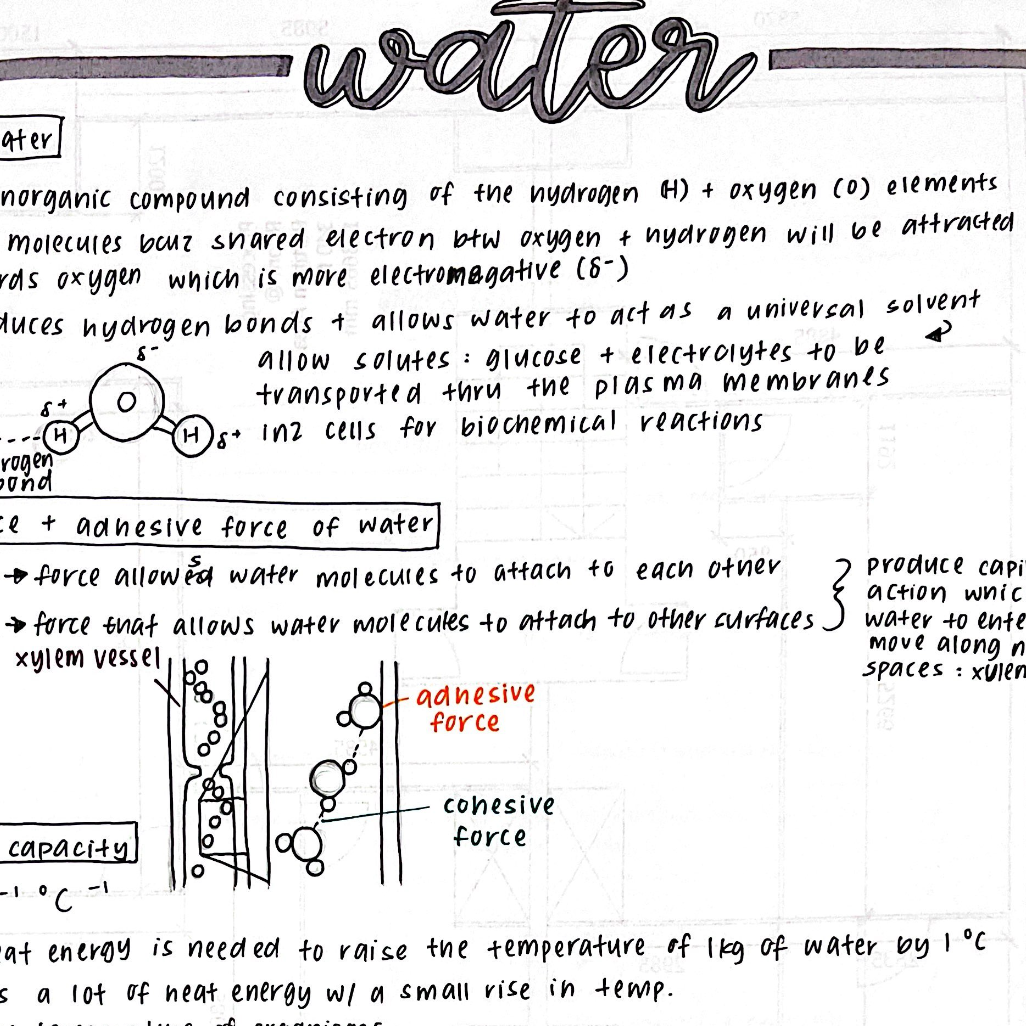 water
ater
norganic compound consisting of the hydrogen (H) + oxygen (O) elements
molecules bcuz shared electron btw oxygen + hydrogen will be attracted
rds oxygen which is more electronegative (δ-)
duces hydrogen bonds + allows water to act as a universal solvent
allow solutes : glucose + electrolytes to be
transported thru the plasma membranes
in2 cells for biochemical reactions
δ-
O
δ+
H
H
δ+
rogen
bond
ce + adhesive force of water
→ force allows water molecules to attach to each other
→ force that allows water molecules to attach to other surfaces
produce capi
action whic
water to ente
move along n
spaces : xylem
xylem vessel
adhesive
force
cohesive
force
capacity
-1 °C -1
eat energy is needed to raise the temperature of 1kg of water by 1 °C
s a lot of heat energy w/ a small rise in temp.
of organisms